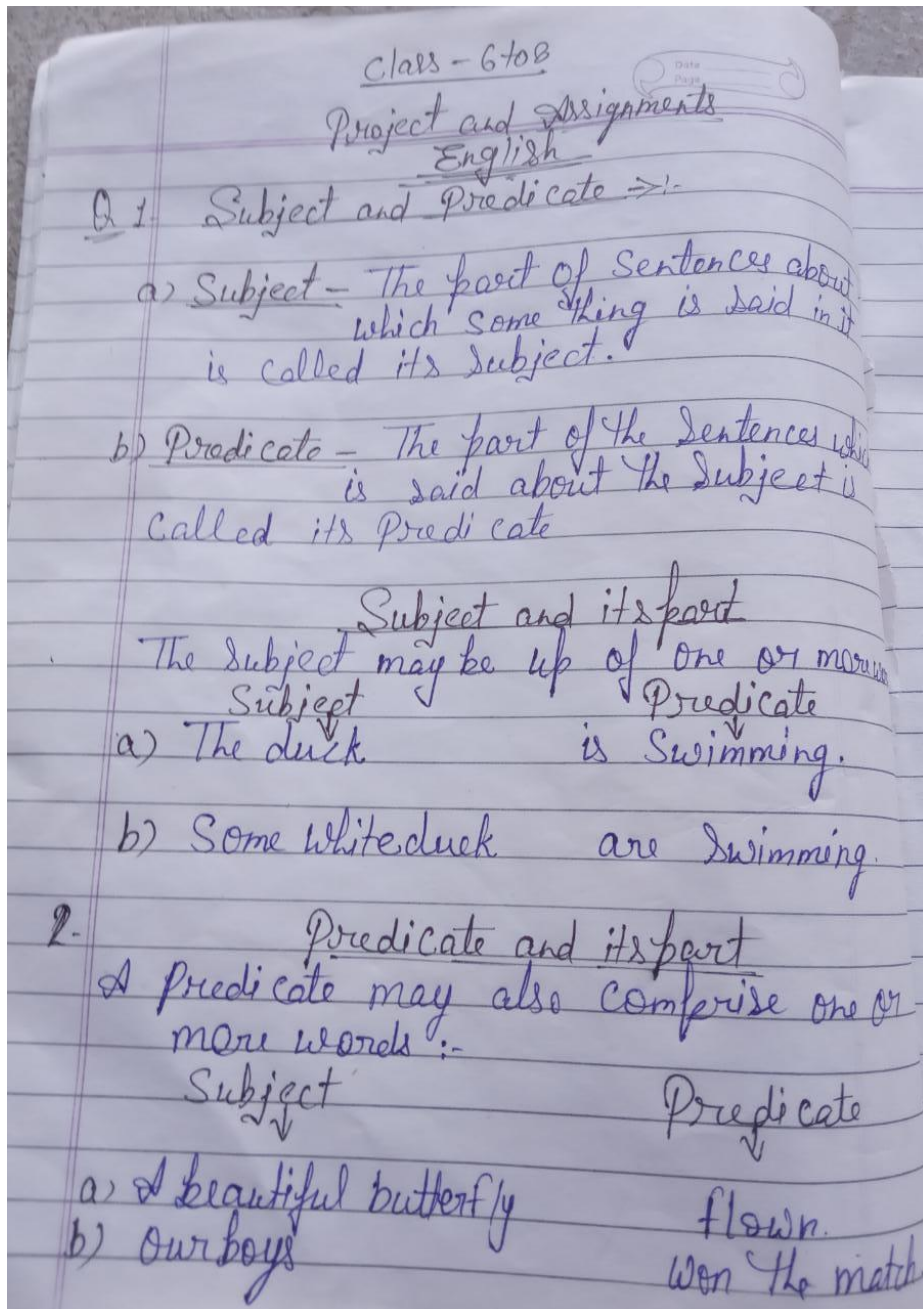 Date
Page
Class - 6 to 8
Project and Assignments
English
Q 1. Subject and Predicate =>:-
a) Subject - The part of Sentences about
which some thing is said in it
is called its subject.
b) Predicate - The part of the Sentences
is said about the subject is
called its Predicate
Subject and its part
The subject may be up of one or more
Subject Predicate
a) The duck is Swimming.
b) Some white duck are swimming.
2. Predicate and its part
A Predicate may also comprise one or
more words :-
Subject
Predicate
a) A beautiful butterfly flown.
b) Our boys won the match